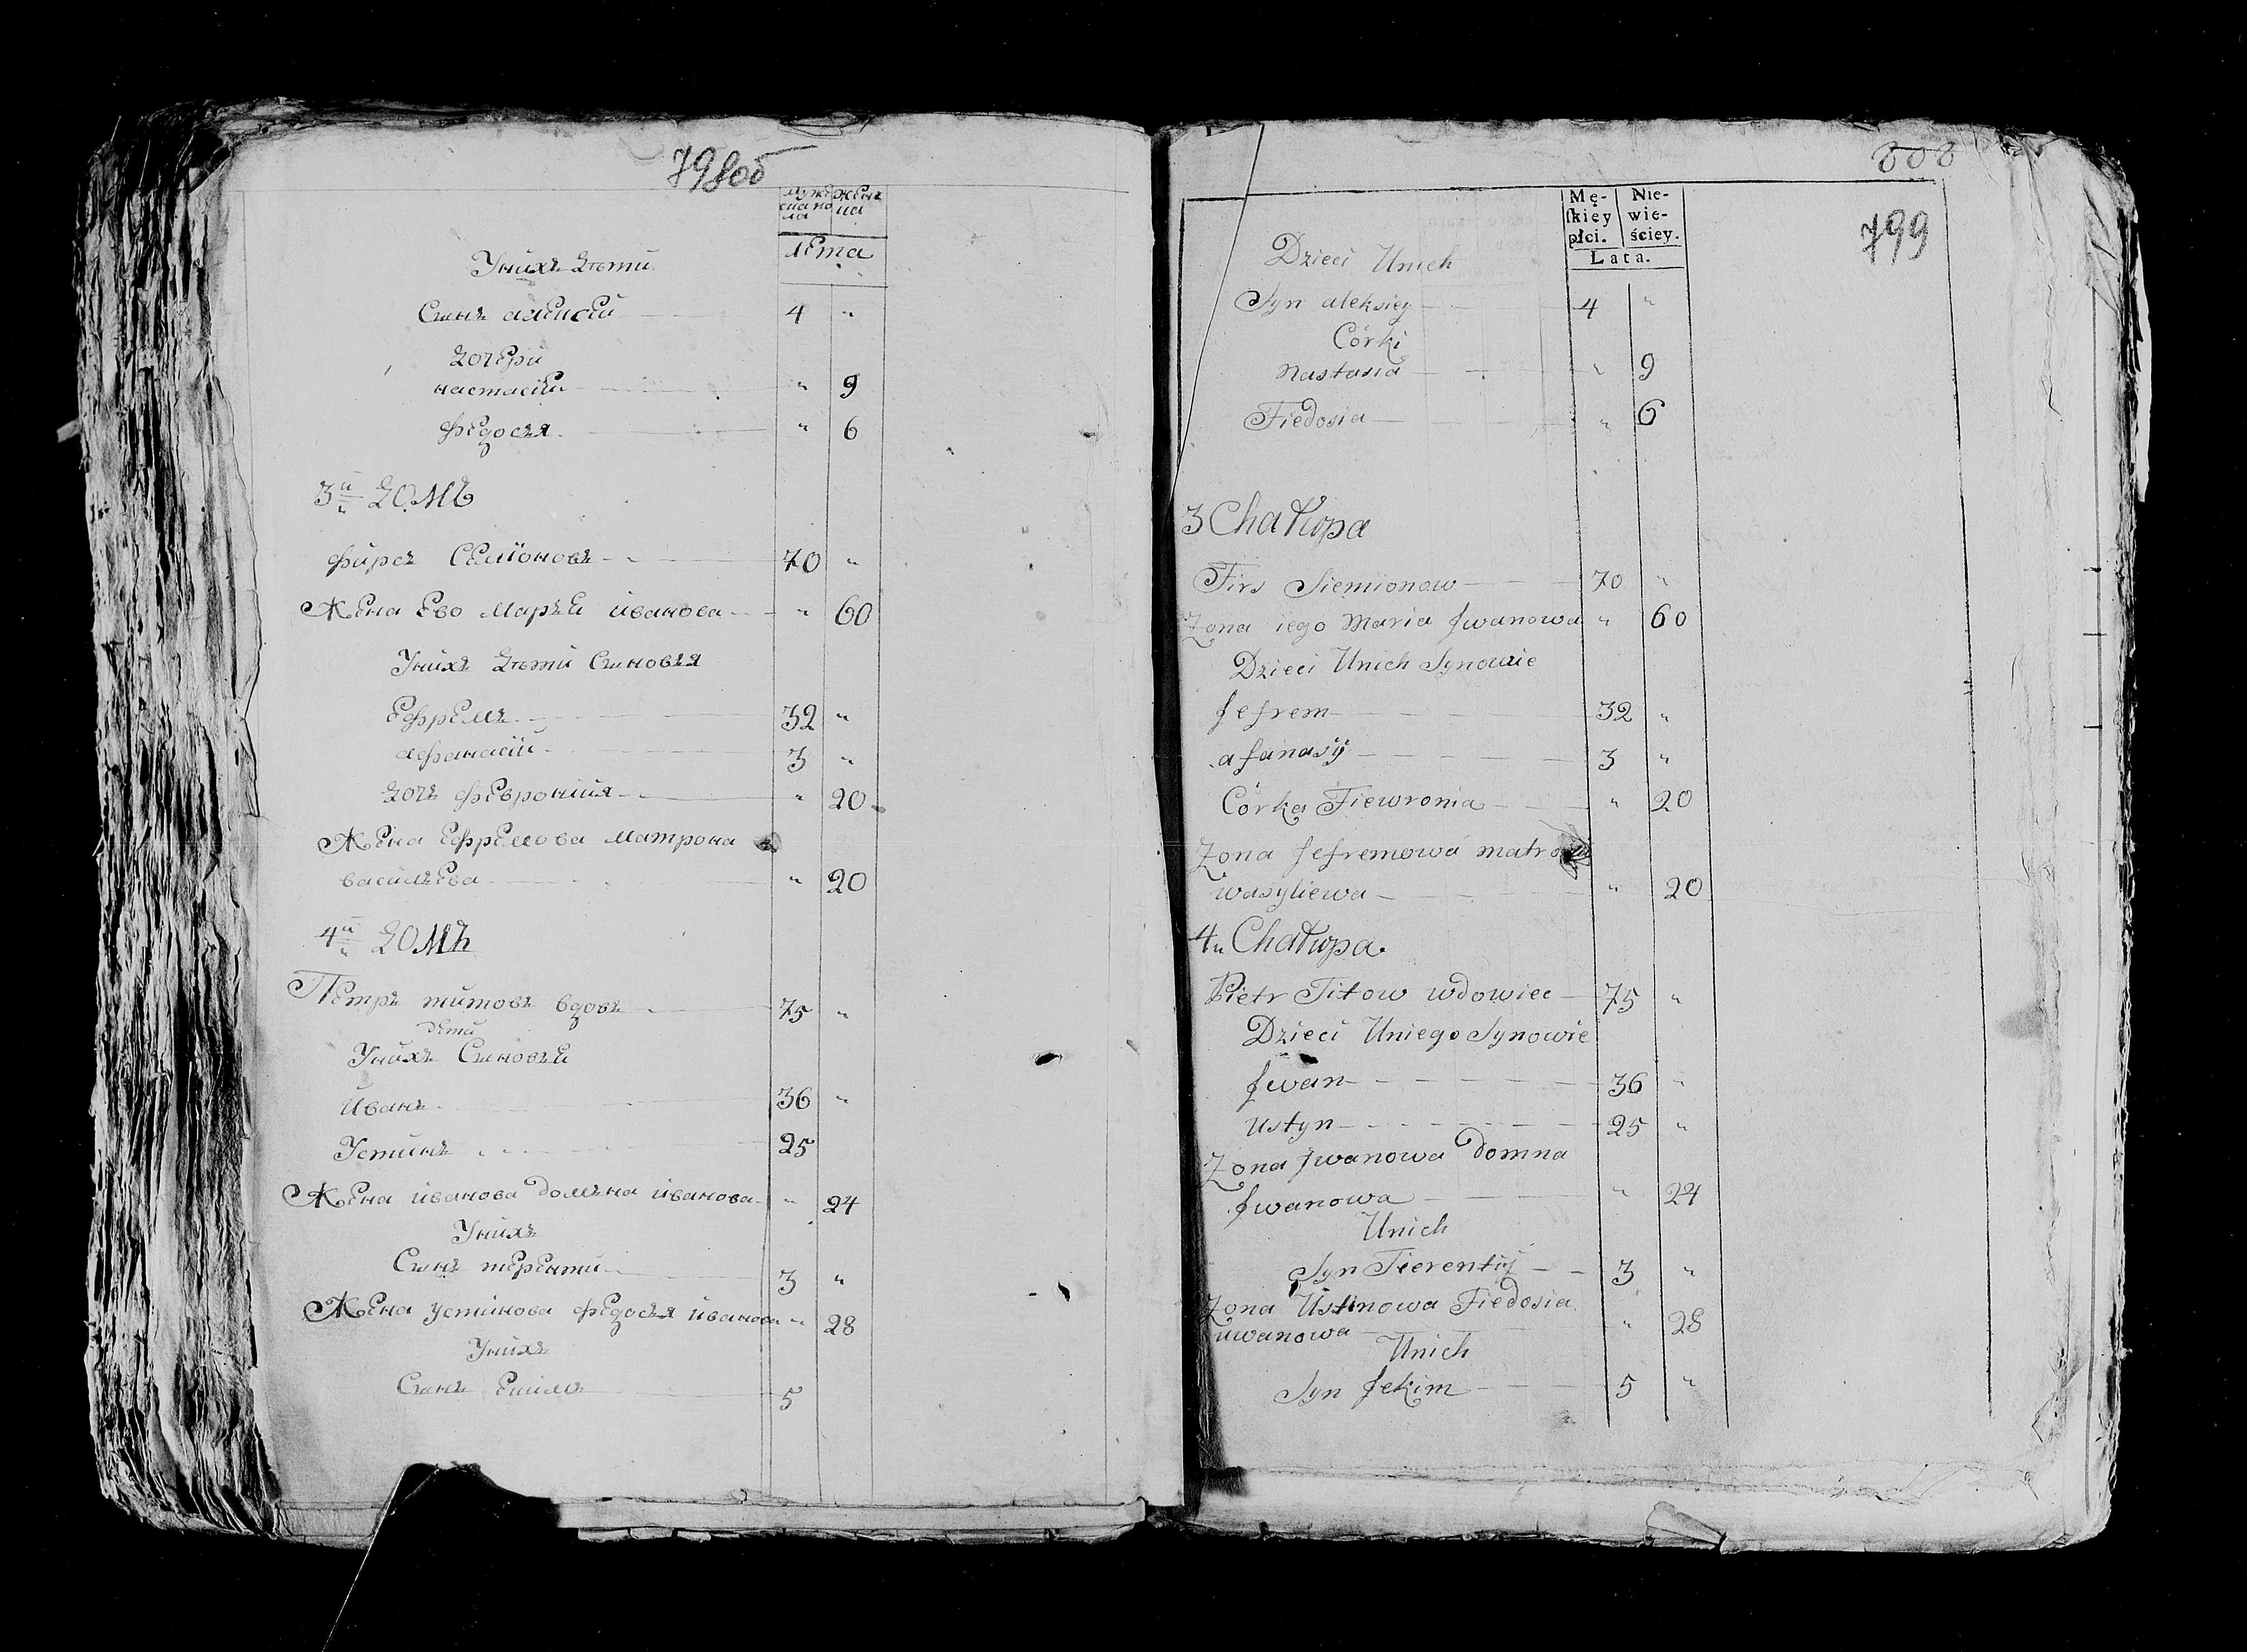 798об
мужеска пола женска
лета
Унихъ дѣти
Сынъ алексей 4 "
дочери
настасїя " 9
федосья " 6
3й домъ
фирсъ Семїоновъ 70 "
Жена Ево Марья иванова " 60
Унихъ дѣти Сыновья
Ефремъ 32 "
афанасїй 3 "
дочь феврония " 20
Жена Ефремова Матрона
васильева " 20
4й домъ
Петръ титовъ вдовъ 75 "
дети
Унихъ Сыновьи
Иванъ 36 "
Устинъ 25
Жена иванова домъна иванова " 24
Унихъ
Сынъ терентий 3 "
Жена устинова федосья иванова " 28
Унихъ
Сынъ Екимъ 5
808
799
Mę- Nie-
ſkiey wie-
płci. ściey.
Lata.
Dzieci Unich
Syn aleksiey 4 "
Córki
Nastasia " 9
Fiedosia " 6
3 Chałupa
Firs Siemionow 70 "
Zona iego Maria Jwanowa " 60
Dzieci Unich Synowie
Jefrem 32 "
afanasÿ 3 "
Córka Fiewronia " 20
Zona Jefremowa matrona
wasyliewa " 20
4u Chałupa.
Pietr Titow wdowiec 75 "
Dzieci Uniego Synowie
Jwan 36 "
Ustyn 25 "
Zona Jwanowa Domna
Jwanowa " 24
Unich
Syn Tierentÿ 3 "
Zona Ustinowa Fiedosia
iwanowa " 28
Unich
Syn Jekim 5 "